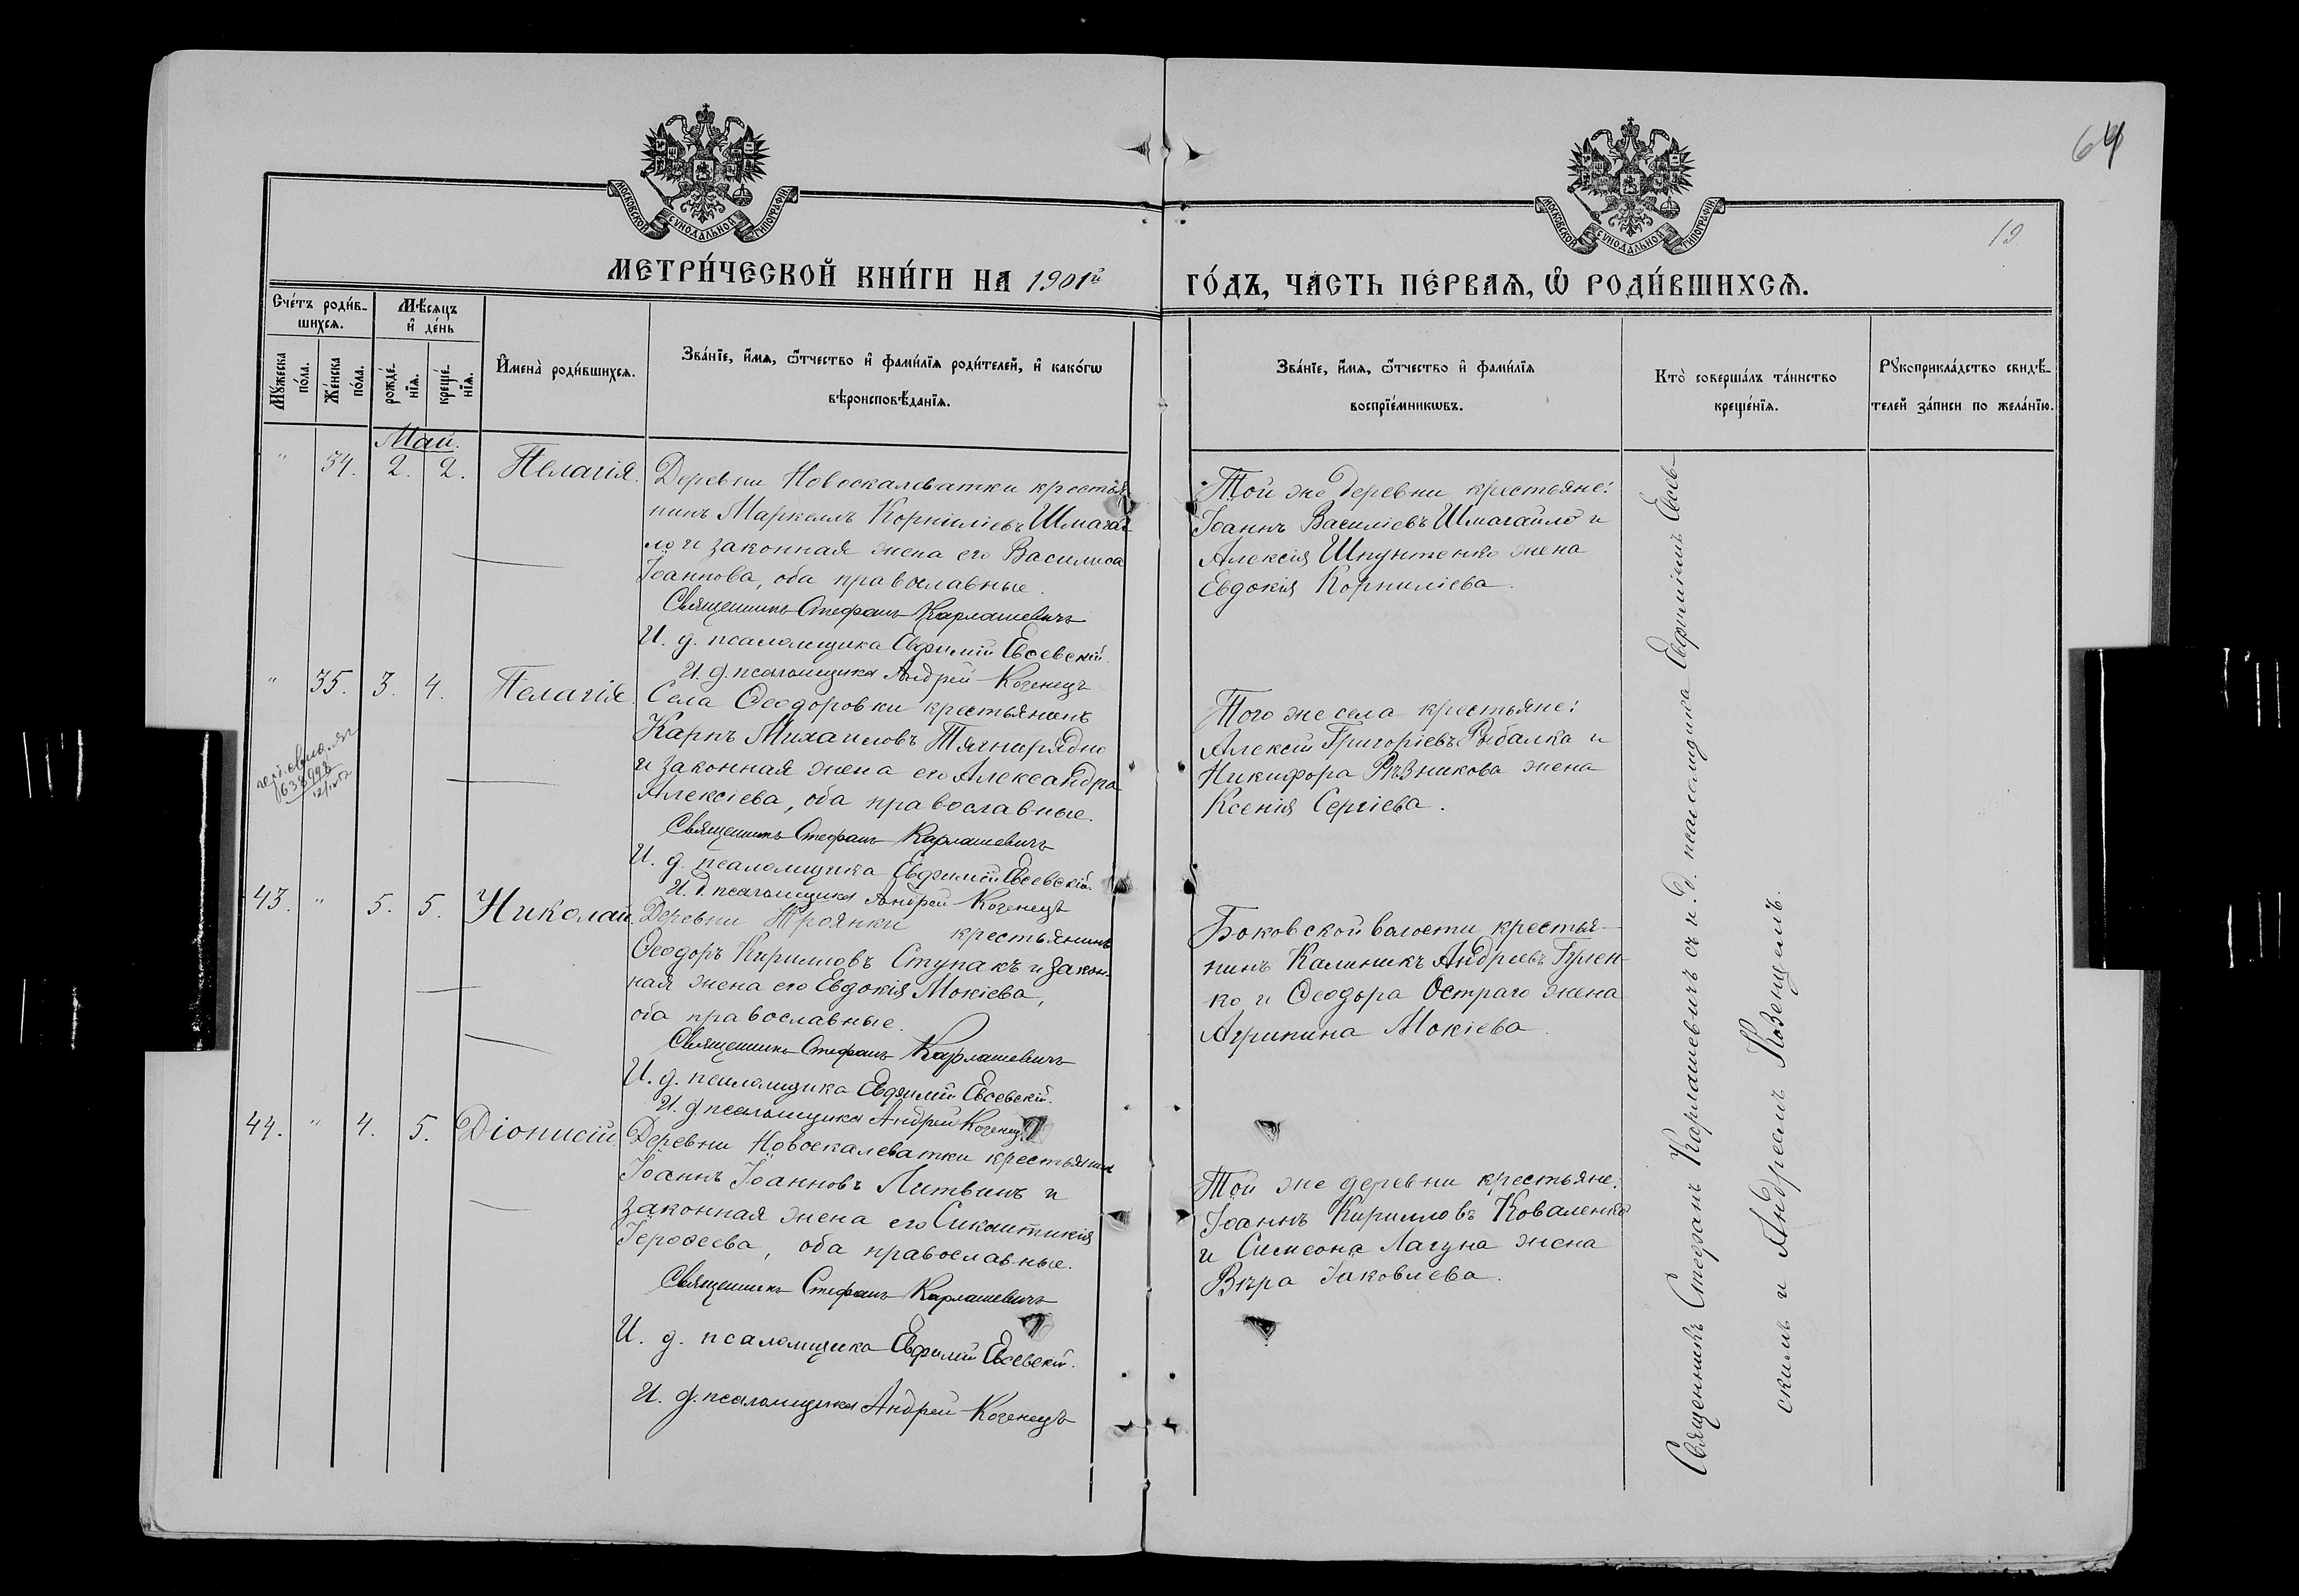 64
19
МОСКОВСКОЙ СѴНОДАЛЬНОЙ ТИПОГРАФІИ
МОСКОВСКОЙ СѴНОДАЛЬНОЙ ТИПОГРАФІИ
МЕТРИ́ЧЕСКОЙ КНИ́ГИ НА 1901й ГО́ДЪ, ЧА́СТЬ ПЕ́РВАѦ, Ѿ РОДИ́ВШИХСѦ.
Сче́тъ роди́в-
шихсѧ.
Мꙋ́жеска
по́ла.
Же́нска
по́ла.
Мѣ́сѧцъ
и҆ де́нь
рожде́-
нїѧ.
креще́-
нїѧ.
И҆мена̀ роди́вшихсѧ.
Зва́нїе, и҆́мѧ, ѻ҆́тчество и҆ фами́лїѧ роди́телей, и҆ како́гѡ
вѣроисповѣ́данїѧ.
Зва́нїе, и҆́мѧ, ѻ҆́тчество и҆ фами́лїѧ
воспрїе́мникѡвъ.
Кто̀ соверша́лъ та́инство
креще́нїѧ.
Рꙋкоприкла́дство свидѣ́-
телей за́писи по жела́нїю.
Май.
" 34. 2. 2. Пелагія.
Деревни Новоскалеватки крестья
нинъ Маркеллъ Корниліевъ Шмагай
ло и законная жена его Василиса
Іоаннова, оба православные.
Священникъ Стефанъ Карлашевичъ
И. д. псаломщика Евфимій Евсевскій.
И. д. псаломщика Андрей Коченецъ
Той же деревни крестьяне:
Іоаннъ Василіевъ Шмагайло и
Алексія Шпунтенко жена
Евдокія Корниліева.
" 35. 3. 4. Пелагія.
638998
Села Ѳеодоровки крестьянинъ
Карпъ Михаиловъ Тягнирядно
и законная жена его Александра
Алексіева, оба православные.
Священникъ Стефанъ Карлашевичъ
И. д. псаломщика Евфимій Евсевскій.
И. д. псаломщика Андрей Коченецъ
Того же села крестьяне:
Алексій Григоріевъ Рыбалка и
Никифора Рѣзникова жена
Ксенія Сергіева.
43. " 5. 5. Николай.
Деревни Троянки крестьянинъ
Ѳеодоръ Кирилловъ Ступакъ и закон-
ная жена его Евдокія Мокіева,
оба православные.
Священникъ Стефанъ Карлашевичъ
И. д. псаломщика Евфимій Евсевскій.
И. д. псаломщика Андрей Коченецъ
Боковской волости крестья-
нинъ Калиникъ Андреевъ
ко и Ѳеодора Остраго жена
Агрипина Мокіева.
44. " 4. 5. Діонисій.
Деревни Новоскалеватки крестьянинъ
Іоаннъ Іоанновъ Литвинъ и
законная жена его Сикаитикія
Іероѳеева, оба православные.
Священникъ Стефанъ Карлашевичъ
И. д. псаломщика Евфимій Евсевскій.
И. д. псаломщика Андрей Коченецъ
Той же деревни крестьяне:
Іоаннъ Кирилловъ Коваленко
и Симеона Лагуна жена
Вѣра Іаковлева.
Священникъ Стефанъ Карлашевичъ съ и. д. псаломщика Евфиміемъ Евсев-
скимъ и Андреемъ Козенцемъ.